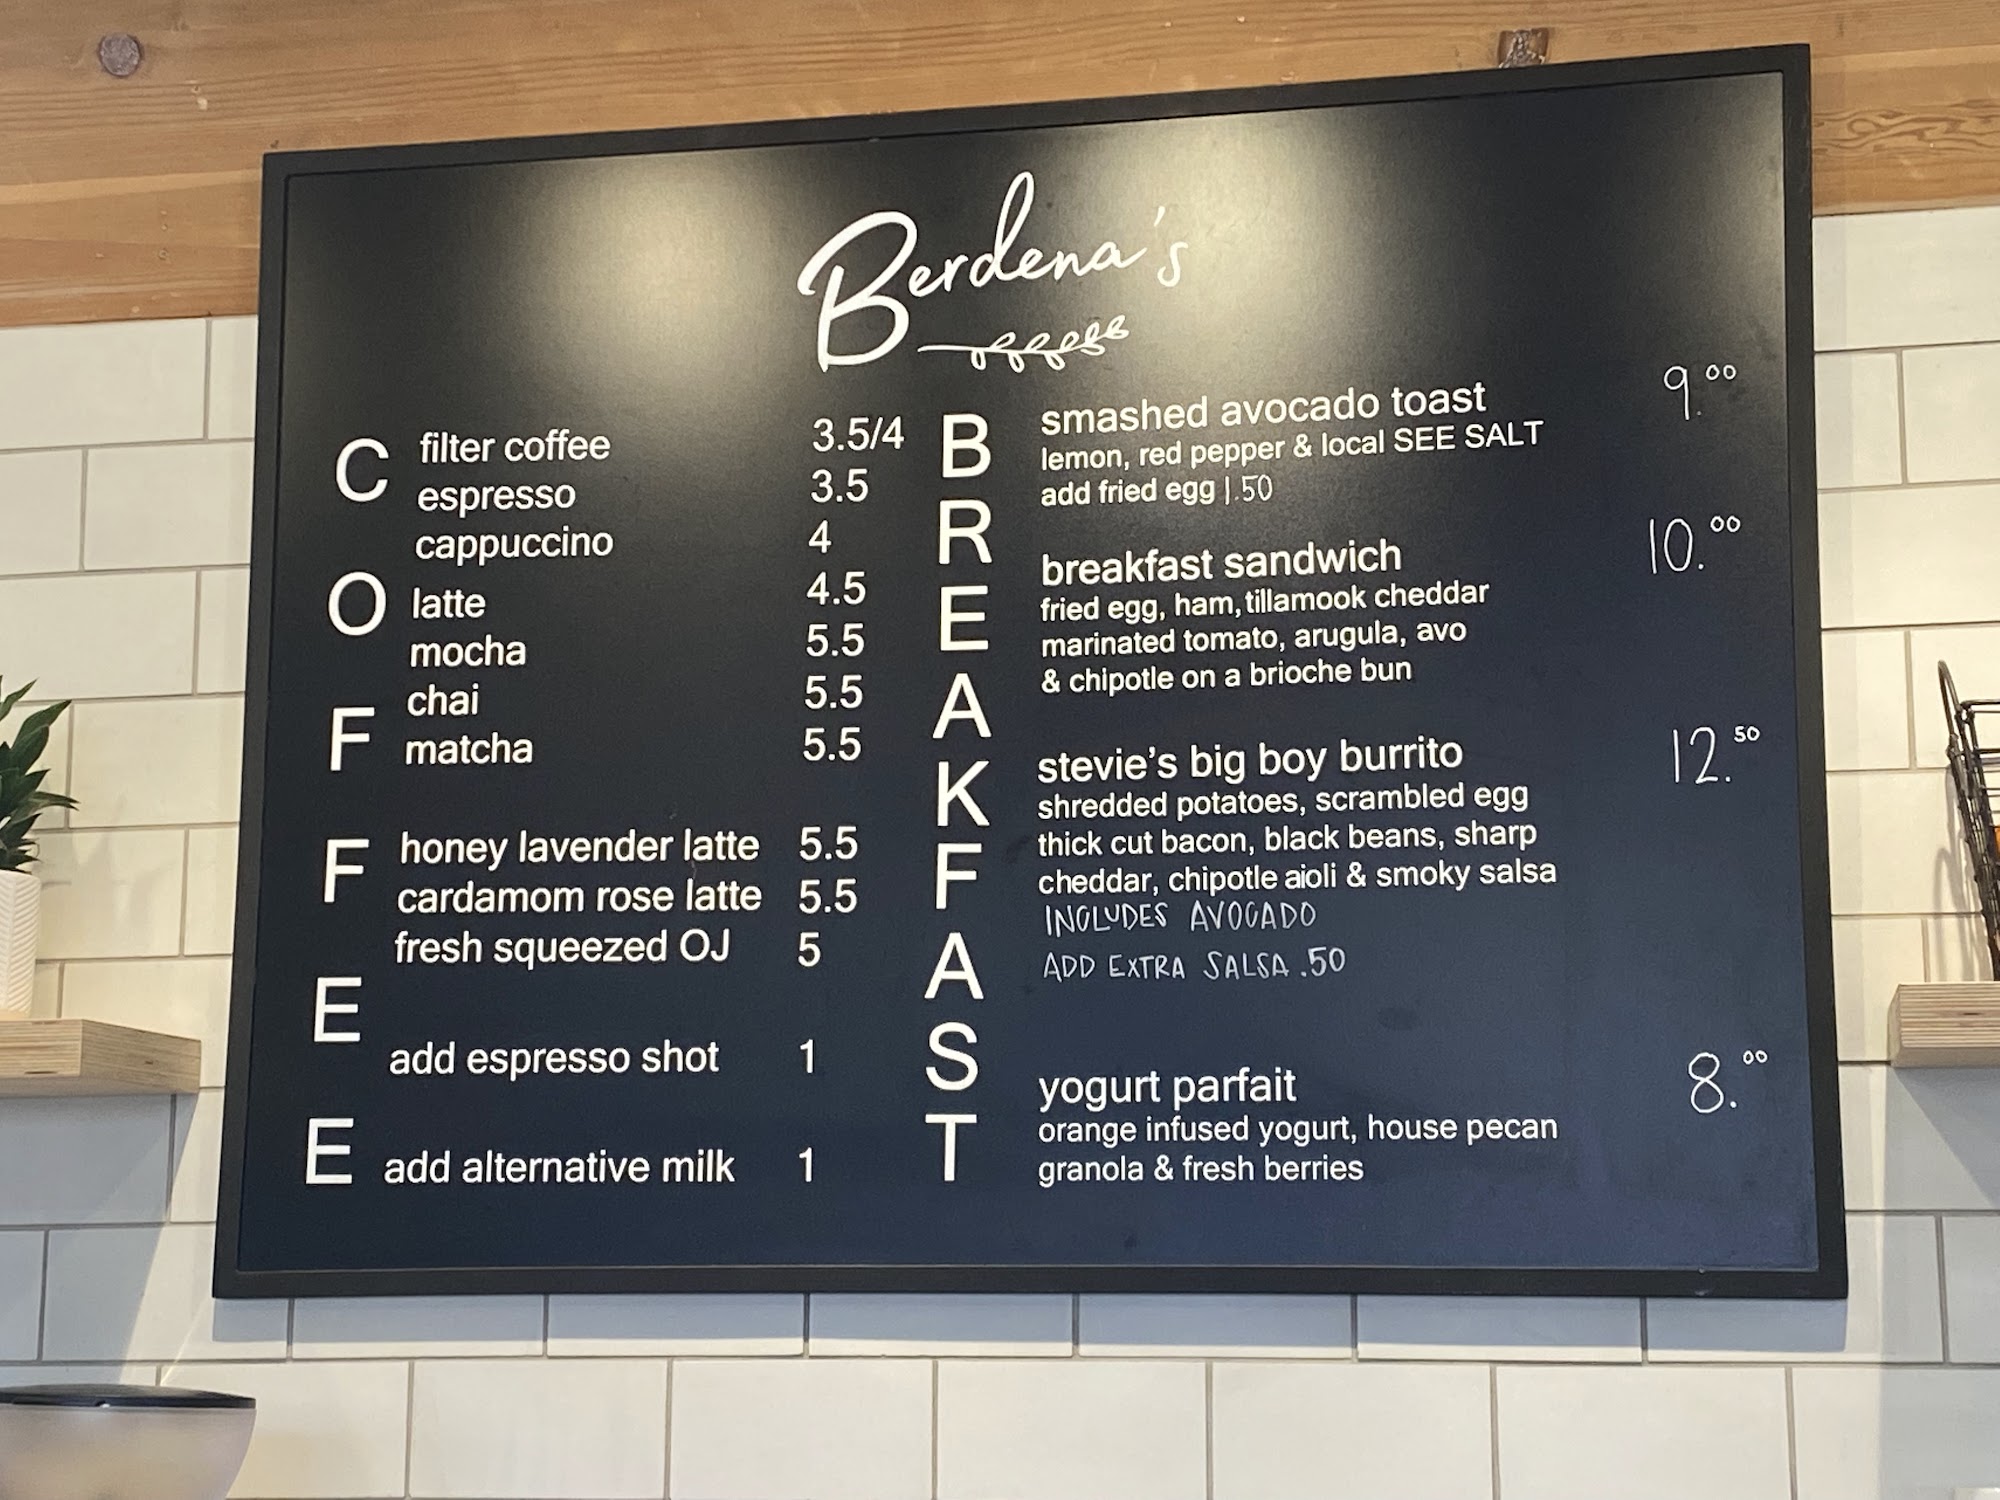 Berdena's
COFFEE
filter coffee 3.5/4
espresso 3.5
cappuccino 4
latte 4.5
mocha 5.5
chai 5.5
matcha 5.5
honey lavender latte 5.5
cardamom rose latte 5.5
fresh squeezed OJ 5
add espresso shot 1
add alternative milk 1
BREAKFAST
smashed avocado toast 9.00
lemon, red pepper & local SEE SALT
add fried egg 1.50
breakfast sandwich 10.00
fried egg, ham, tillamook cheddar
marinated tomato, arugula, avo
& chipotle on a brioche bun
stevie's big boy burrito 12.50
shredded potatoes, scrambled egg
thick cut bacon, black beans, sharp
cheddar, chipotle aioli & smoky salsa
INCLUDES AVOCADO
ADD EXTRA SALSA .50
yogurt parfait 8.00
orange infused yogurt, house pecan
granola & fresh berries